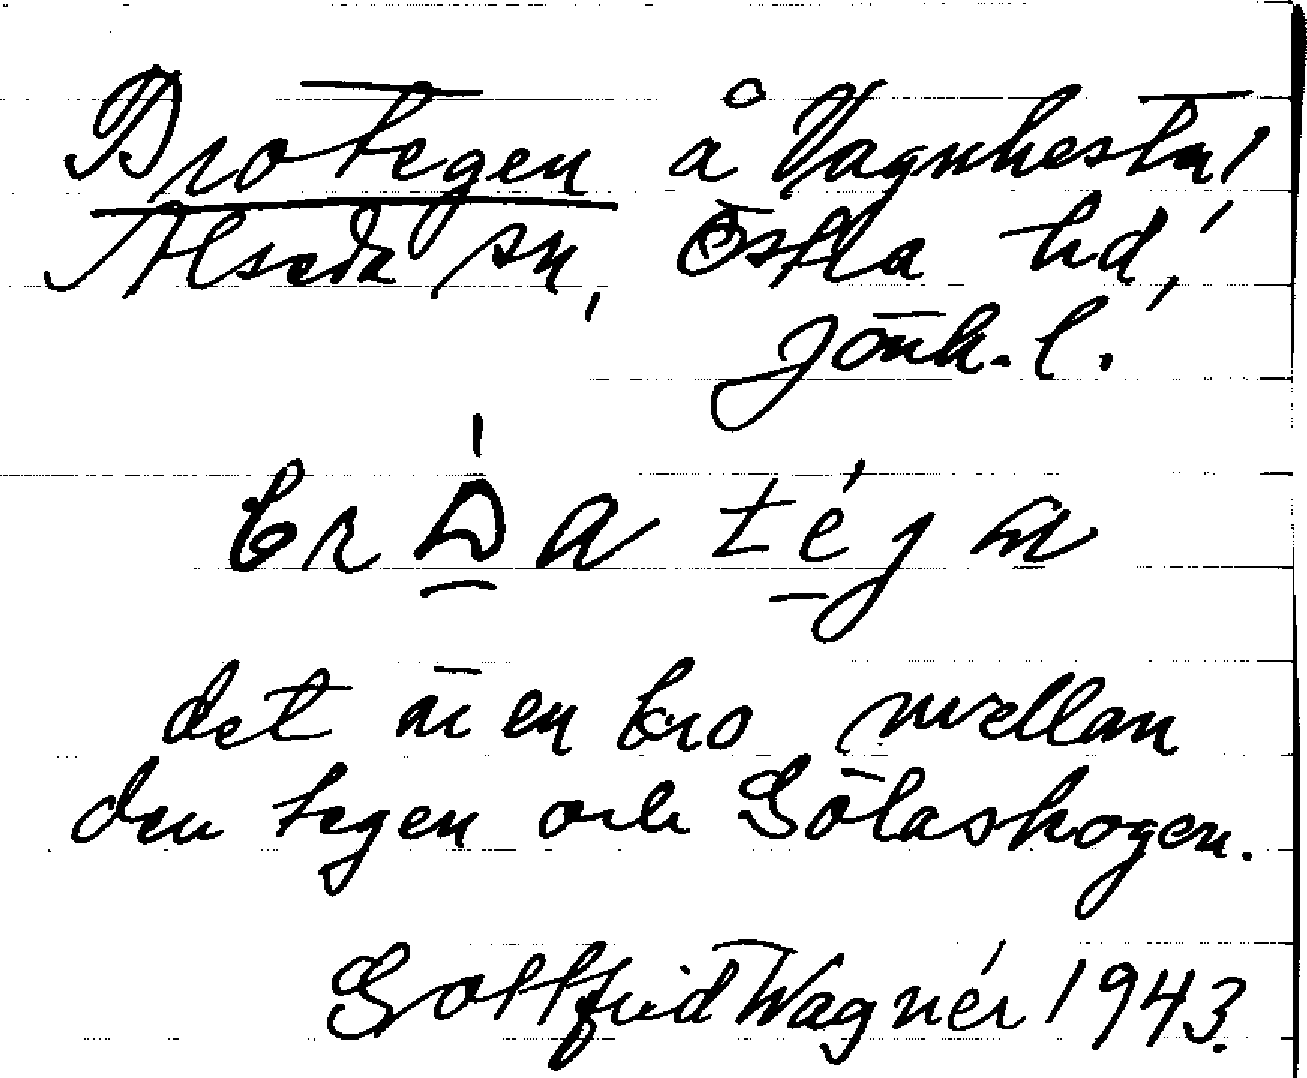 Brotegen å Vagnhesta,
Alseda sn, Östra hd,
Jönk. l.
det är en bro mellan
den tegen och Gölaskogen.
Gottfrid Wagnér 1943.